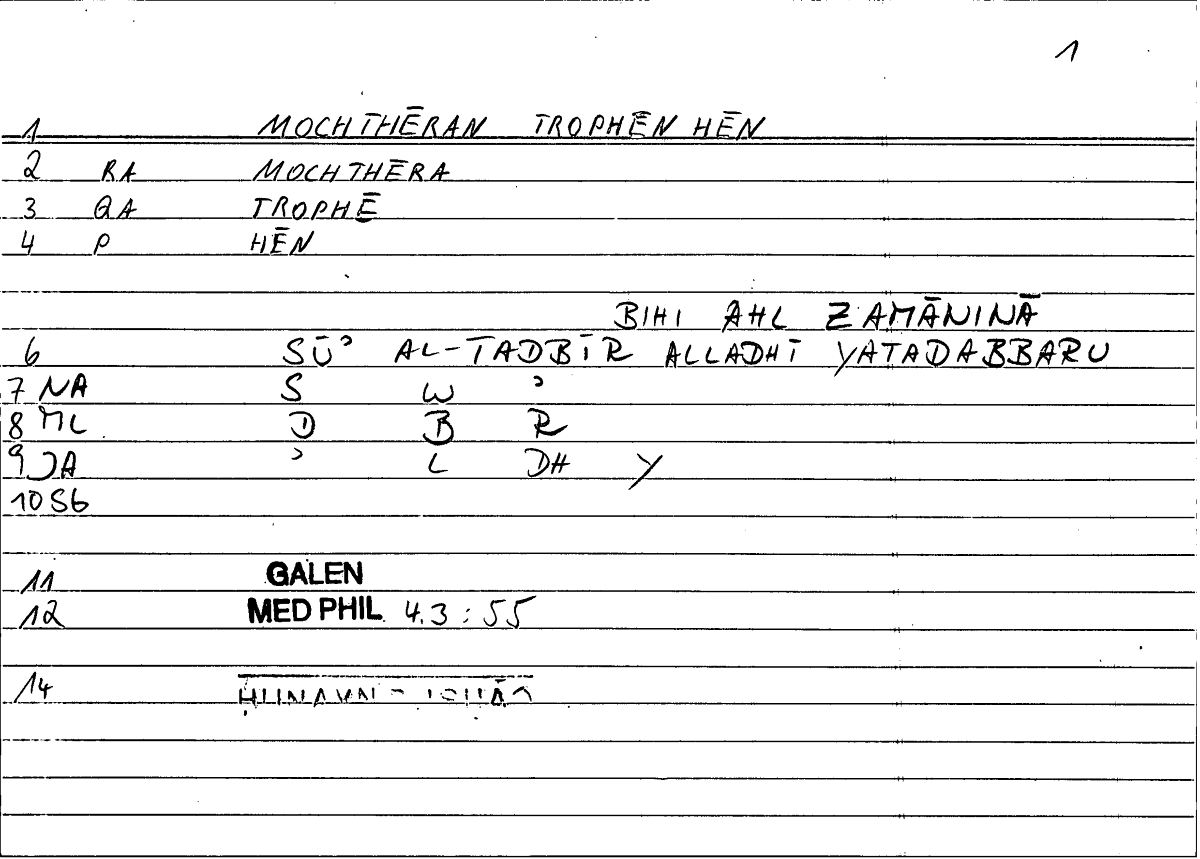 1
1 MOCHTHĒRAN TROPHĒN HĒN
2 RA MOCHTHĒRA
3 QA TROPHĒ
4 P HĒN
BIHI AHL ZAMĀNINĀ
6 SŪʾ AL-TADBĪR ALLADHĪ YATADABBARU
7 NA S W ʾ
8 ML D B R
9 JA ʾ L DH Y
10 Sb
11 GALEN
12 MED PHIL 4.3 : 55
14